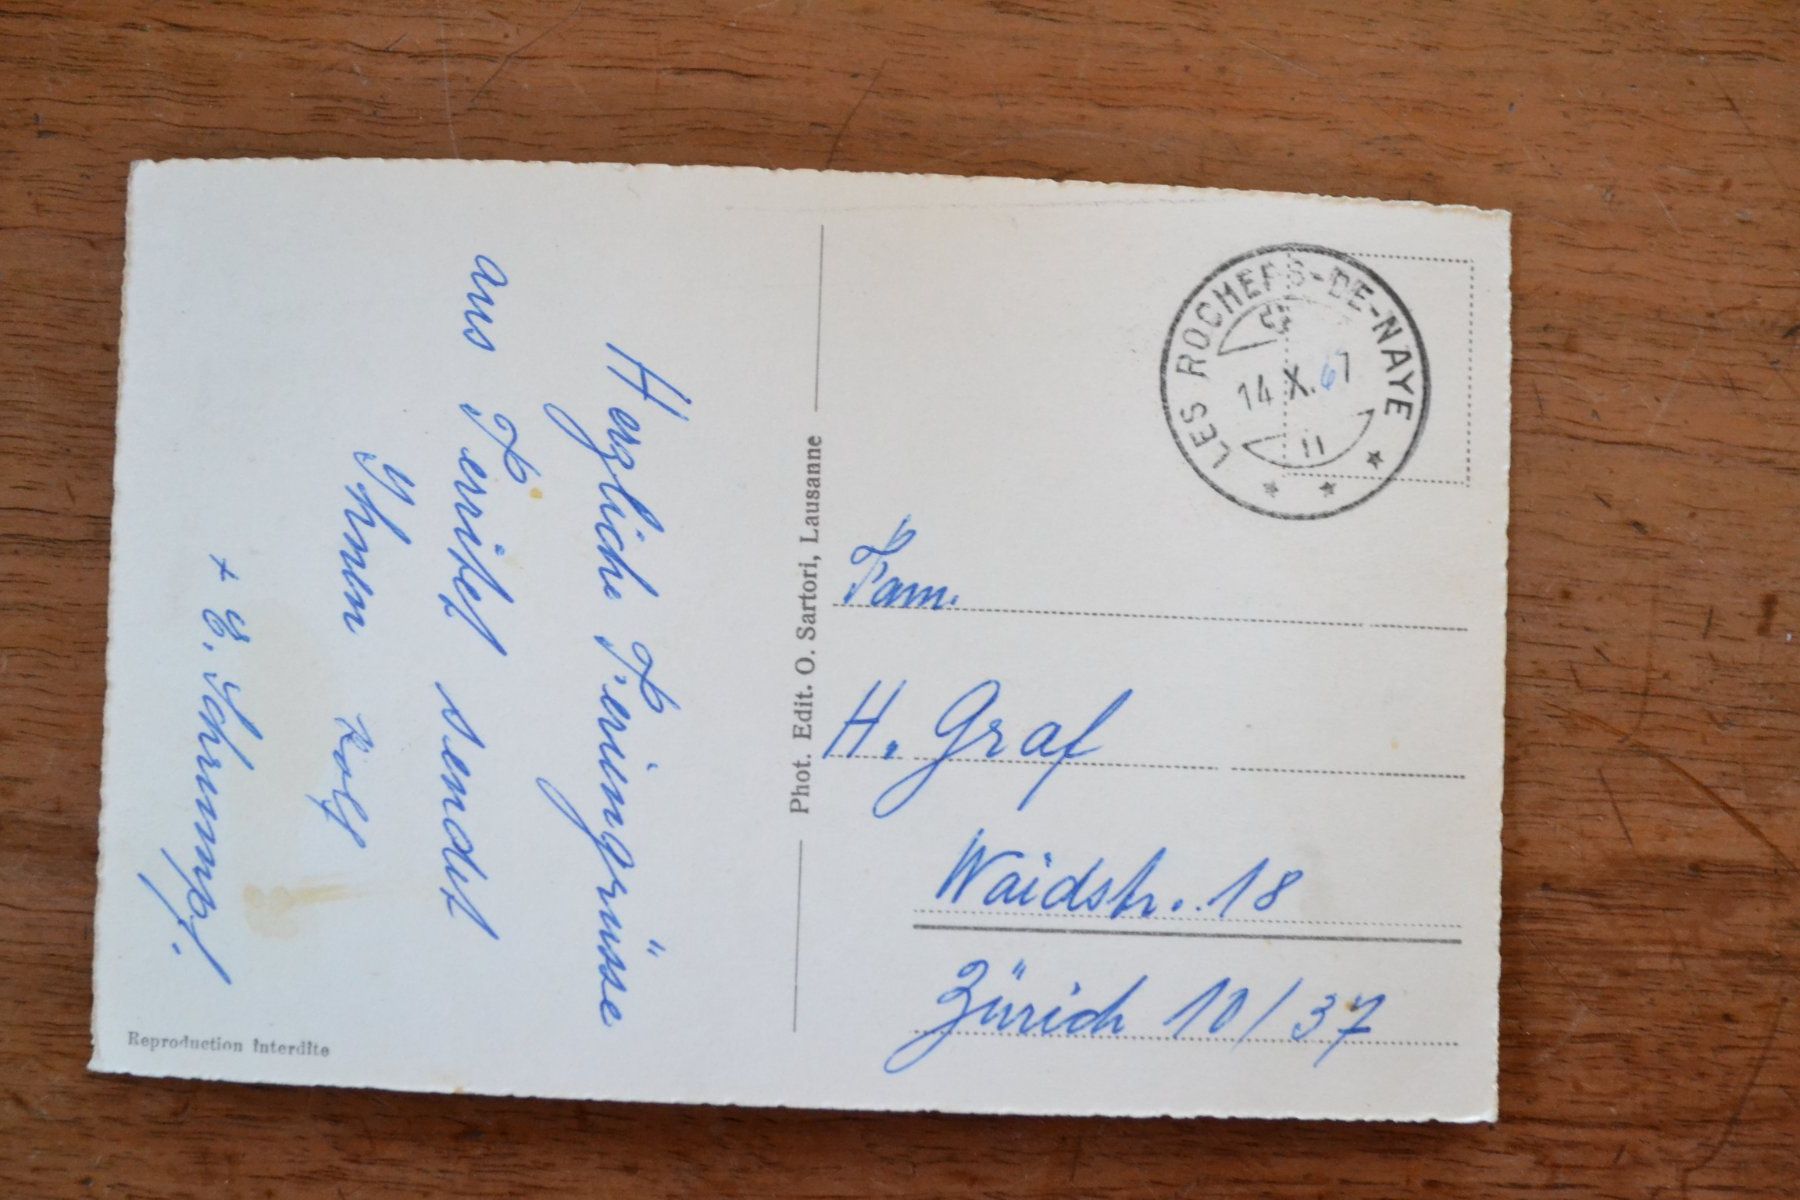 Herzliche Feriengrüsse
aus Territet sendet
Ihnen Rolf
+ E. Schrumpf.
Reproduction interdite
Phot. Edit. O. Sartori, Lausanne
LES ROCHERS-DE-NAYE
14 X. 67
11
Fam.
H. Graf
Waidstr. 18
Zürich 10/37